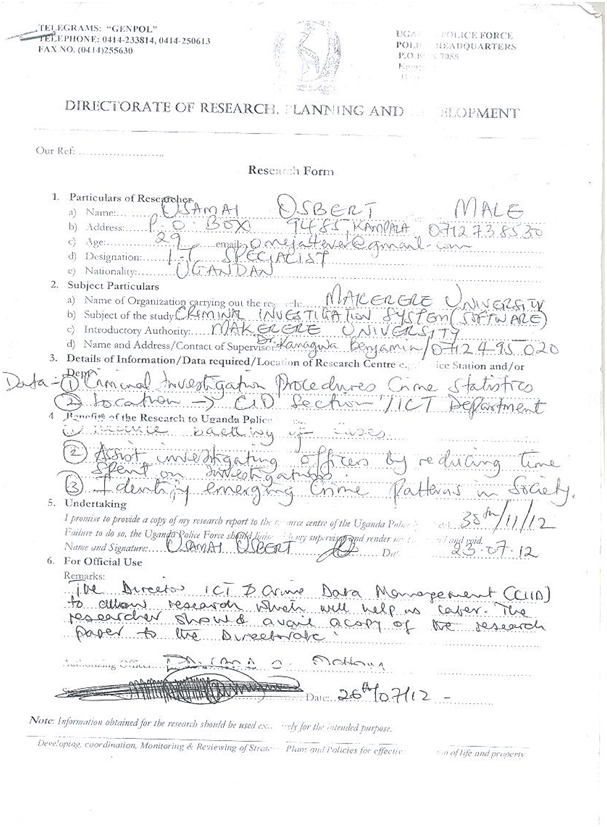 TELEGRAMS: "GENPOL"
TELEPHONE: 0414-233814, 0414-250613
FAX NO. (0414)255630
UGANDA POLICE FORCE
POLICE HEADQUARTERS
P.O.BOX 7055
DIRECTORATE OF RESEARCH, PLANNING AND DEVELOPMENT
Our Ref: ........................
Research Form
1. Particulars of Researcher
a) Name: OSAMAI OSBERT MALE
b) Address: P.O. BOX 9485, KAMPALA 0712738530
c) Age: 29 email:
d) Designation: I.T SPECIALIST
e) Nationality: UGANDAN
2. Subject Particulars
a) Name of Organization carrying out the MAKERERE UNIVERSITY
b) Subject of the study: CRIMINAL INVESTIGATION SYSTEM (SOFTWARE)
c) Introductory Authority: MAKERERE UNIVERSITY
d) Name and Address/Contact of Supervisor: Dr. Benjamin/0712495020
3. Details of Information/Data required/Location of Research Centre Police Station and/or
Dept
Data - ① Criminal Investigation Procedures Crime Statistics
② Location → CID Section / ICT Department
4 Benefits of the Research to Uganda Police
① of cases
② Assist investigating officers by reducing time
spent on investigations
③ Identify emerging Crime Patterns in Society.
5. Undertaking
I promise to provide a copy of my research report to the resource centre of the Uganda Police by 30th/11/12
Failure to do so, the Uganda Police Force should my supervisor and render and void.
Name and Signature: OSAMAI OSBERT Date 23.07.12
6. For Official Use
Remarks:
The Director ICT & Crime Data Management (CIID)
to allow research which will help us later. The
researcher should avail a copy of the research
paper to the Directorate.
Authorising Officer
Date: 26th/07/12 -
Note: Information obtained for the research should be used exclusively for the intended purpose.
Developing, coordination, Monitoring & Reviewing of Plans and Policies for of life and property